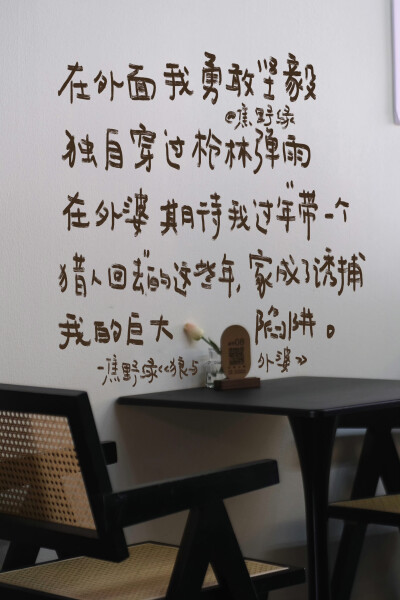 在外面我勇敢坚毅
@焦野绿
独自穿过枪林弹雨
在外婆期待我过年“带一个
猎人回去”的这些年，家成了诱捕
我的巨大 陷阱。
-焦野绿《狼与 外婆》